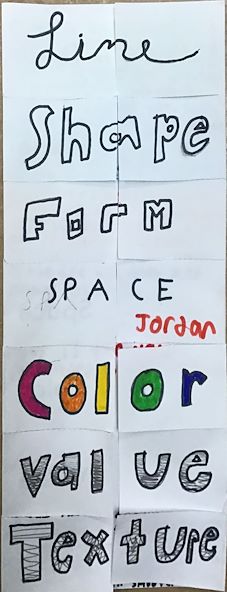 Line
Shape
Form
SPACE
Jordan
Color
value
Texture